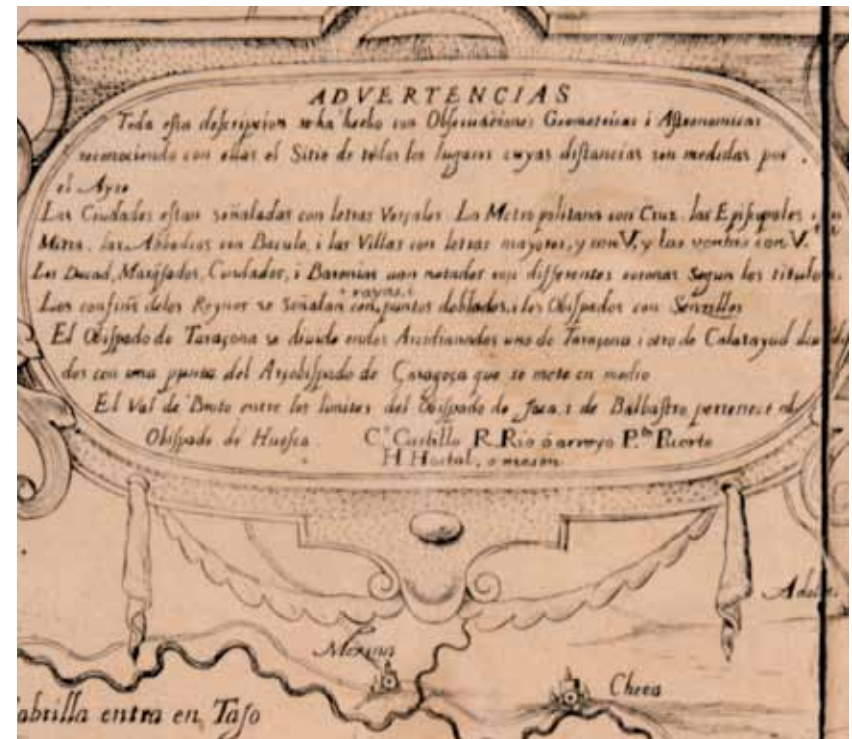 ADVERTENCIAS
Toda esta descripcion se ha hecho con Obseruaciones Geometricas i Astronomicas
reconociendo con ellas el Sitio de todos los lugares cuyas distancias son medidas por
el Ayre
Las Ciudades estan señaladas con letras Versales. La Metropolitana con Cruz. las Episcopales con
Mitra. las Abbadias con Baculo, i las Villas con letras mayores, y con V. y las ventas con V.ta
Los Ducad, Marqsados, Condados, i Baronias van notados con differentes coronas segun los titulos.
rayas, i
Los confins delos Reynos se señalan con puntos doblados, i los Obispados con Senzillos
El Obispado de Taraçona se diuide endos Arcedianados uno de Taraçona i otro de Calatayud diuidi
dos con una punta del Arzobispado de Çaragoça que se mete en medio
El Val de Broto entre los limites del Obispado de Jaca, i de Balbastro pertenece al
Obispado de Huesca C.o Castillo R. Rio ó arroyo P.to Puerto
H. Hostal, o meson
Adobe
Checa
abrilla entra en Tajo